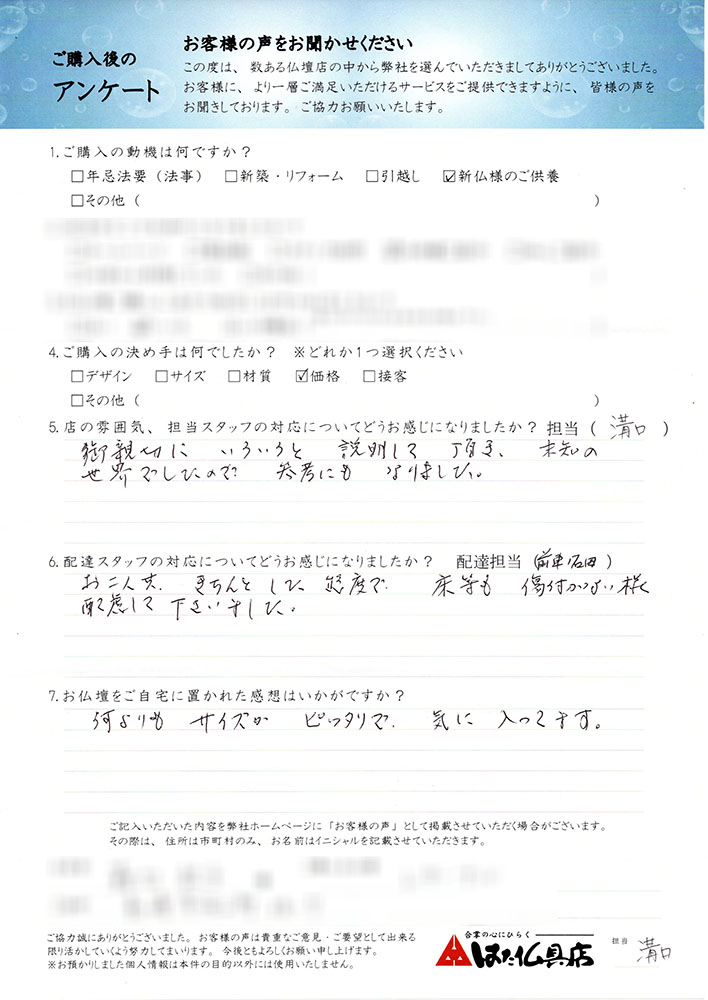 ご購入後の
アンケート
お客様の声をお聞かせください
この度は、数ある仏壇店の中から弊社を選んでいただきましてありがとうございました。
お客様に、より一層ご満足いただけるサービスをご提供できますように、皆様の声を
お聞きしております。ご協力お願いいたします。
1.ご購入の動機は何ですか？
□年忌法要（法事） □新築・リフォーム □引越し ☑新仏様のご供養
□その他（ ）
4.ご購入の決め手は何でしたか？ ※どれか1つ選択ください
□デザイン □サイズ □材質 ☑価格 □接客
□その他（ ）
5.店の雰囲気、担当スタッフの対応についてどうお感じになりましたか？担当（ 溝口 ）
御親切に いろいろと 説明して 頂き、 未知の
世界でしたので 参考にも なりました。
6.配達スタッフの対応についてどうお感じになりましたか？ 配達担当（ 石田 ）
お二人共 きちんと した 態度で 床等も 傷付かない様
配慮して 下さいました。
7.お仏壇をご自宅に置かれた感想はいかがですか？
何よりも サイズが ピッタリで 気に 入ってます。
ご記入いただいた内容を弊社ホームページに「お客様の声」として掲載させていただく場合がございます。
その際は、住所は市町村のみ、お名前はイニシャルを記載させていただきます。
ご協力誠にありがとうございました。お客様の声は貴重なご意見・ご要望として出来る
限り活かしていくよう努力してまいります。今後ともよろしくお願い申し上げます。
※お預かりしました個人情報は本件の目的以外には使用いたしません。
合掌の心にひらく
はた仏具店
担当 溝口